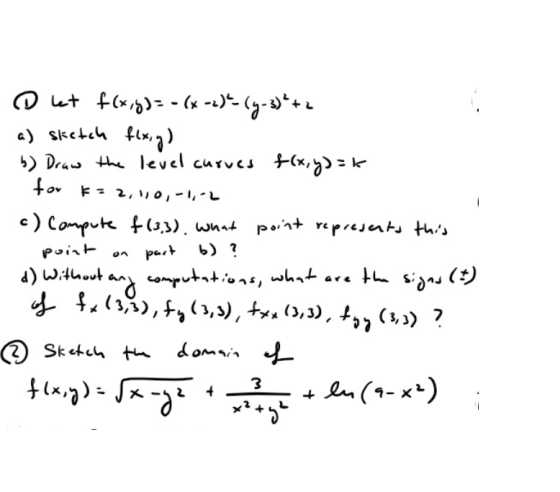 ① Let f(x,y) = -(x-2)² - (y-3)² + 2
a) Sketch f(x,y)
b) Draw the level curves f(x,y) = k
for k = 2, 1, 0, -1, -2
c) Compute f(3,3). What point represents this
point on part b) ?
d) Without any computations, what are the signs (±)
of fx(3,3), fy(3,3), fxx(3,3), fyy(3,3) ?
② Sketch the domain of
f(x,y) = √(x-y²) + 3/(x²+y²) + ln(9-x²)